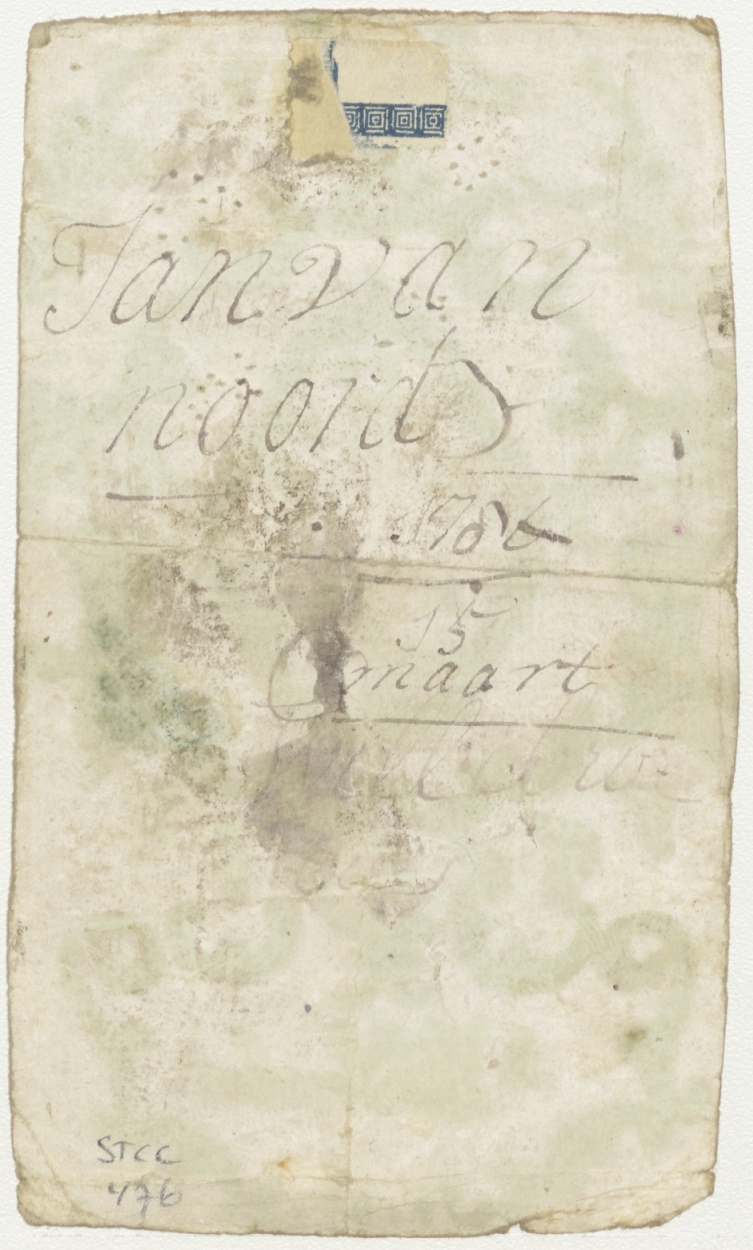 Jan van
noord
1786
15
maart
STCC
476